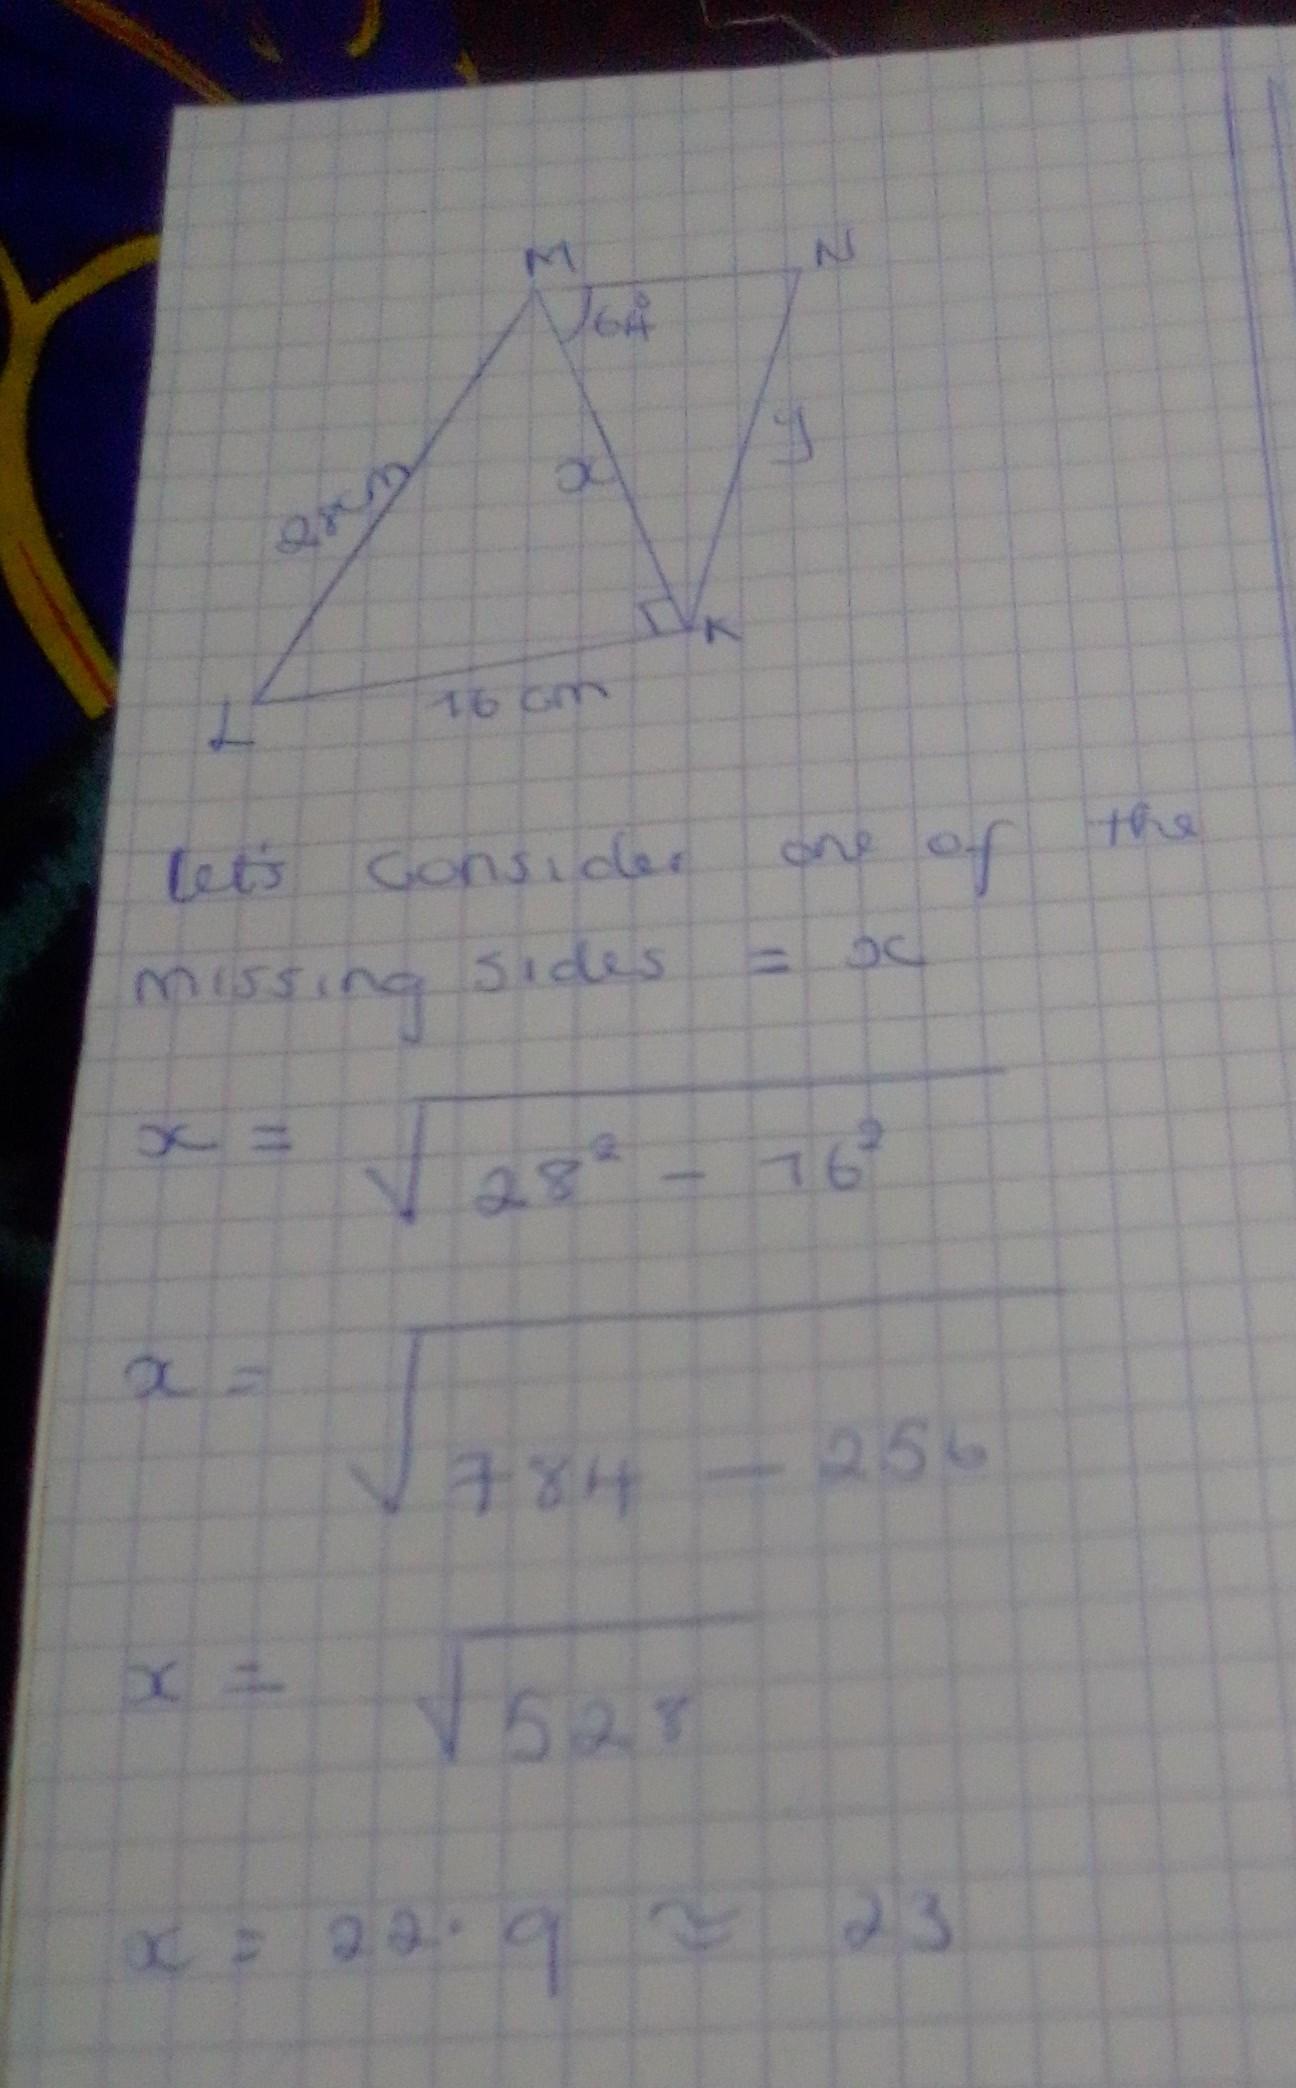 M N
64°
28cm
x
y
K
16 cm
L
let's consider one of the
missing sides = x
x = √28² - 16²
x = √784 - 256
x = √528
x = 22.9 ≈ 23